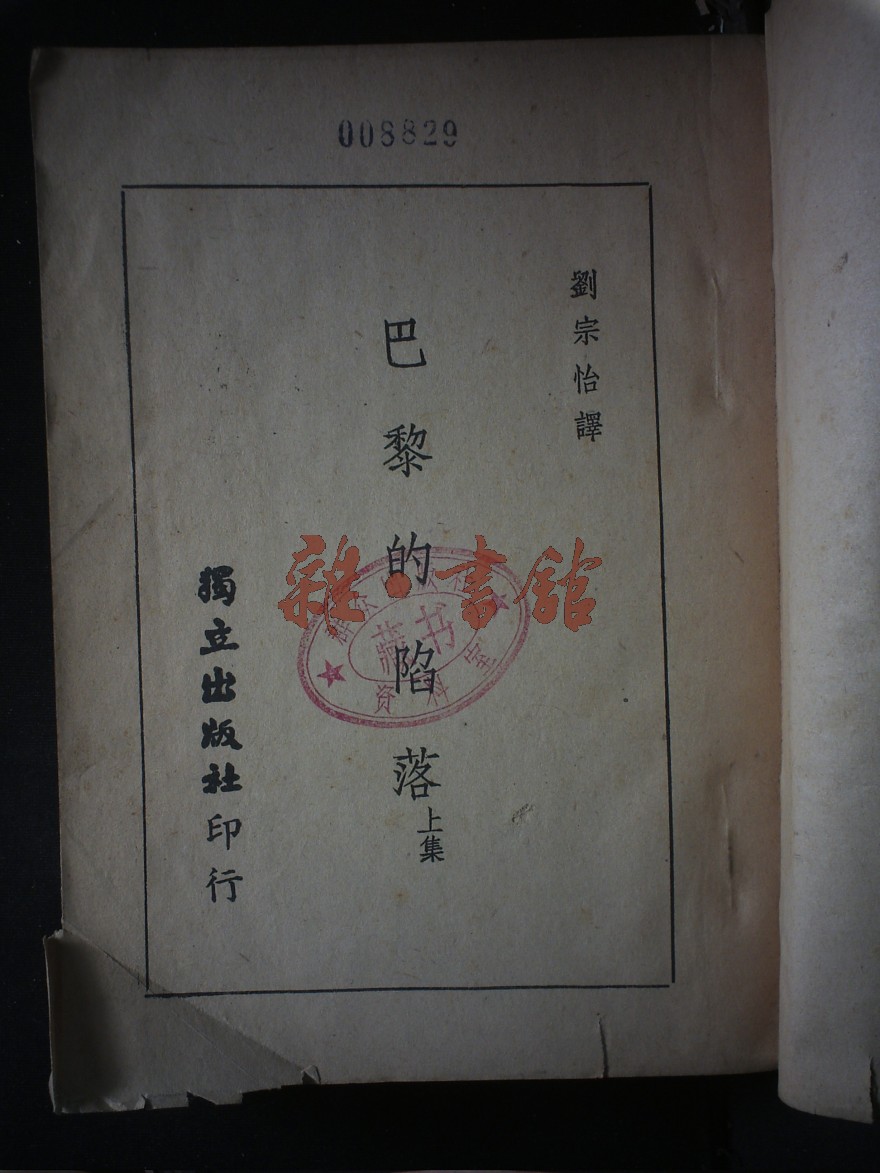 008829
劉宗怡譯
巴黎的陷落
上集
獨立出版社印行
雜·書館
藏书
资料室